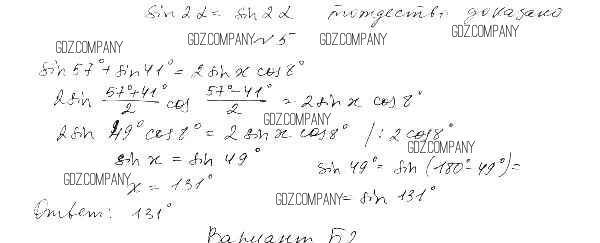 sin 2α = sin 2α тождество доказано
GDZ.COMPANY
GDZ.COMPANY
GDZ.COMPANY
GDZ.COMPANY
№ 5
sin 57° + sin 41° = 2 sin x cos 8°
2 sin (57°+41°)/2 cos (57°-41°)/2 = 2 sin x cos 8°
GDZ.COMPANY
2 sin 49° cos 8° = 2 sin x cos 8° /: 2 cos 8°
GDZ.COMPANY
sin x = sin 49° sin 49° = sin (180° - 49°) =
GDZ.COMPANY
x = 131° = sin 131°
GDZ.COMPANY
Ответ: 131°
Вариант Б2